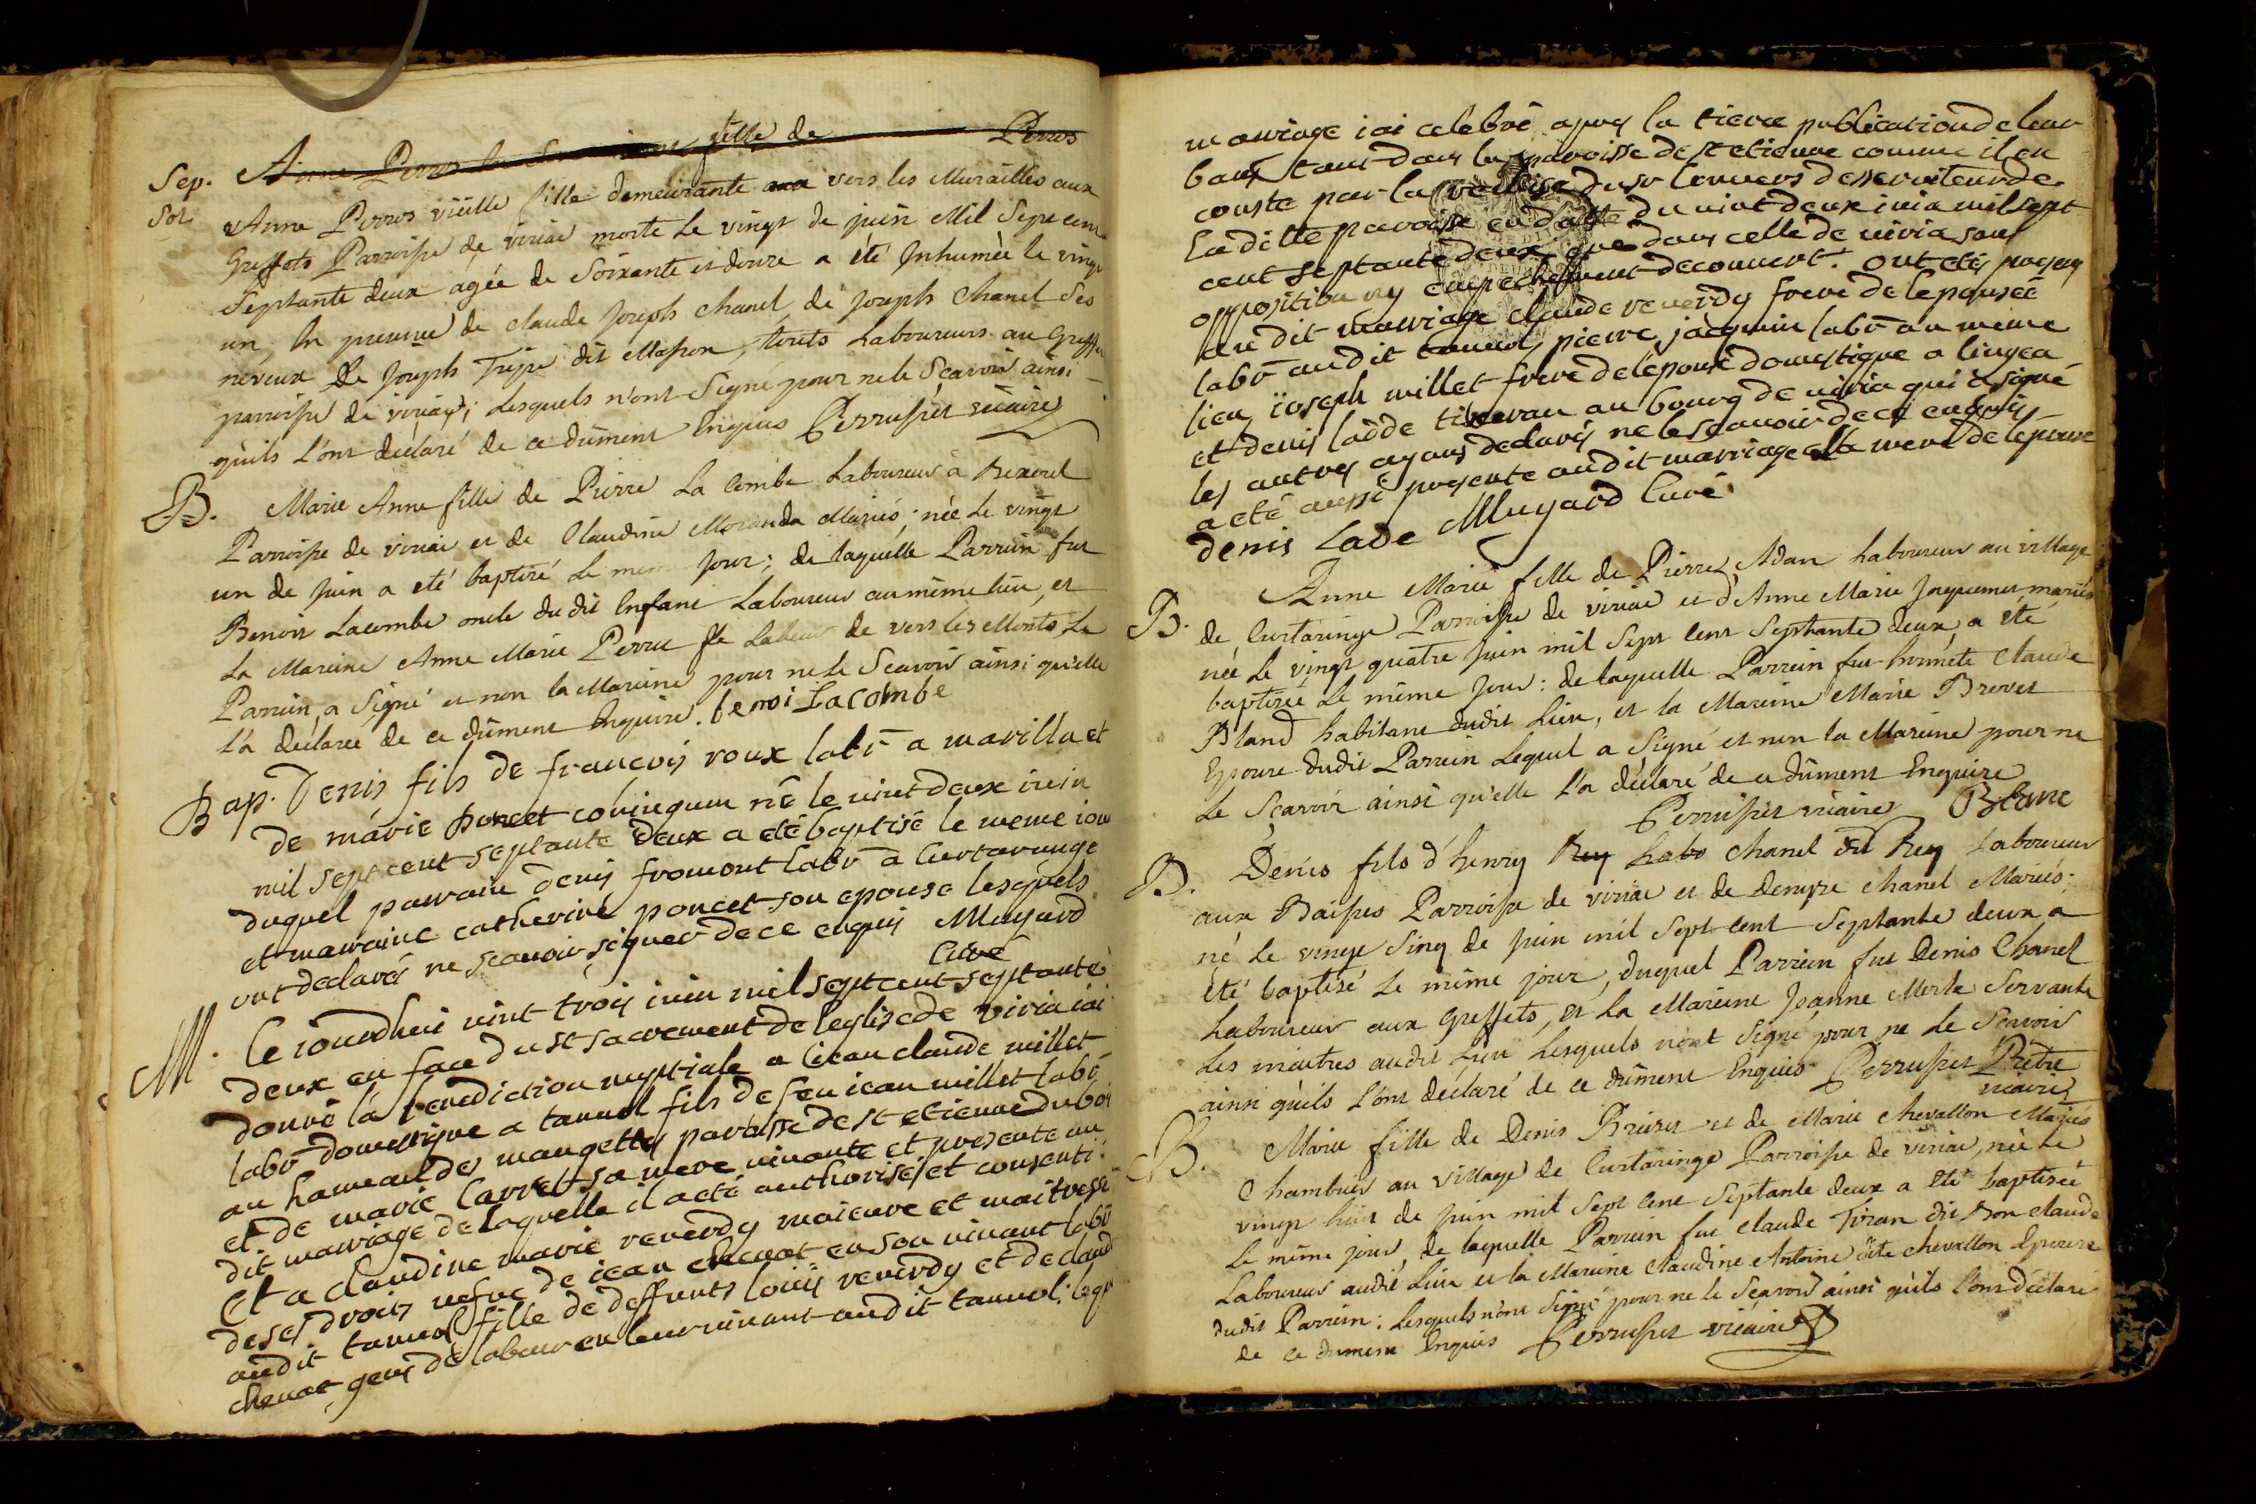 Sep. Anne Perros fille de Perros
Sol. Anne Perros vieille fille demeurante aux vers les Murailles aux
Greffets Parroisse de viriac morte le vingt de juin Mil Sept cent
Septante deux agée de Soixante et douze a été Inhumée le vingt
un, En presence de Claude Joseph Chanel, de Joseph Chanel Ses
neveux De Joseph Tripe dit Masson, touts Laboureurs au Greffets
parroisse de viriac; Lesquels n'ont Signe pour ne le Scavoir ainsi
qu'ils l'ont déclaré de ce dûment Enquis Perrusset vicaire
B. Marie Anne fille de Pierre La Combe Laboureur à
Parroisse de viriac et de Claudine Moranda Mariés; née Le vingt
un de Juin a eté baptizé Le meme Jour; de laquelle Parrein fut
Benoit Lacombe oncle du dit Enfant Laboureur au même lieu, et
La Mareine Anne Marie Perru de vers les Monts, Le
Parrein a Signé et non la Mareine pour ne le Scavoir ainsi qu'elle
l'a déclarée de ce dûment Enquise. benoi Lacombe
Bap. Denis fils de francois roux labr a marilla et
de marie poncet coniugum né le vint deux iuin
mil sept cent septante deux a eté baptisé le meme iour
duquel parrain denis fromont labr a Curtaringe
et marraine catherine poncet son epouse lesquels
ont declarés ne scauoir signer de ce enquis Mugard
Curé
M. Ce iourdhui vint trois iuin mil sept cent septante
deux en face du st sacrement de leglise de viria iai
donné la benediction nuptiale a iean claude millet
labr domestique a tanuol fils de feu iean millet labr
au hameau des mangettes paroisse de st etienne du boi
et de marie Carrel sa mere viuante et presente au
dit mariage de laquelle il a eté authorisé et consenti
Et a claudine marie reverdy maieure et maitresse
de ses droits vefve de iean chanot en son viuant labr
audit tanuol fille de deffunts louis reverdy et de claud
chanot gens de labeur en leur viuant audit tanuol: lequ
mariage iai celebré apres la tierce publication de leur
bans tant dans la paroisse de st etienne comme il en
conste par la du sr desserviteur de
la ditte paroisse en datte du vint deux iuin mil sept
cent septante deux que dans celle de viria sans
opposition ny empechement decouuert. ont etés presens
au dit mariage claude reverdy frere de lepousée
labr audit tanuol pierre jacquin labr au meme
lieu ioseph millet frere de lepoux domestique a lingea
et denis ladde tisseran au bourg de viria qui a signé
les autres ayans declarés ne le scauoir de ce enquis
a eté aussi presente au dit mariage la mere de lepoux
denis Lade Mugard Curé
B. Anne Marie fille de Pierre Adan Laboureur au village
de Curtaringe Parroisse de viriac et d'Anne Marie Jorquemet mariés
née Le vingt quatre Juin mil Sept Cent Septante deux, a été
baptisée Le même Jour: de laquelle Parrein fut honnete Claude
Bland habitant dudit Lieu, et la Mareine Marie Brevet
Epouse dudit Parrein Lequel a Signé et non la Mareine pour ne
Le Sçavoir ainsi qu'elle l'a déclaré de ce dûment Enquise
Perrusset vicaire Blanc
B. Denis fils d'henry Rey Labo Chanel dit Rey Laboureur
aux Baisses Parroisse de viriac et de Denyse Chanel Mariés;
né Le vingt Sinq de Juin mil Sept Cent Septante deux a
été baptisé Le même jour, duquel Parrein fut Denis Chanel
Laboureur aux Greffets, et La Mareine Joanne Merle Servante
des maitres audit Lieu Lesquels n'ont Signé pour ne Le Scavoir
ainsi qu'ils l'ont déclaré de ce dûment Enquis Perrusset Pretre
vicaire
B. Marie fille de Denis et de Marie Chevallon Mariés
Chambrier au village de Curtaringe Parroisse de viriac, née Le
vingt huit de Juin mil Sept Cent Septante deux a été baptisée
Le même jour, de laquelle Parrein fut Claude Tiran dit Bon claude
Laboureur audit Lieu et la Mareine Claudine Antoine dite Chevallon Epouse
dudit Parrein: Lesquels n'ont Signé pour ne le Sçavoir ainsi qu'ils l'ont déclaré
de ce dument Enquis Perrusset vicaire